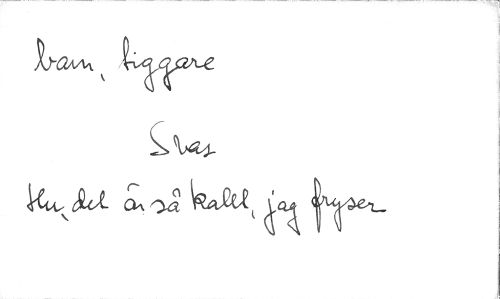 barn, tiggare
Svas
Hu, det är så kallt, jag fryser